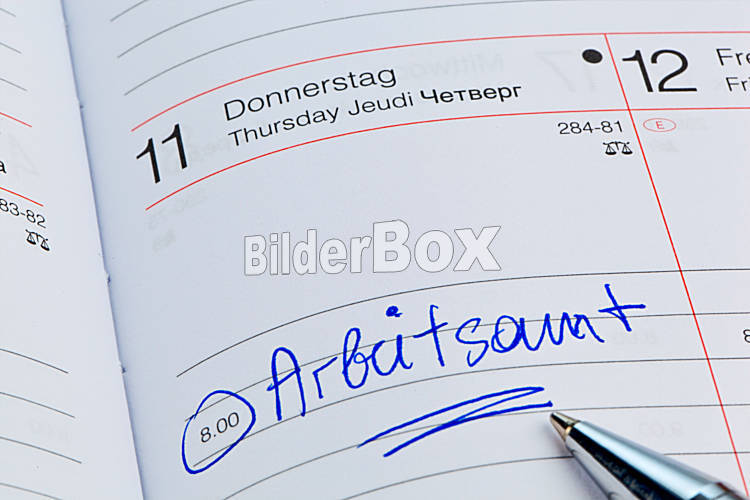 Donnerstag
11 Thursday Jeudi Четверг
284-81
12 Fre
Fri
E
83-82
a
BilderBox
Arbeitsamt
8.00